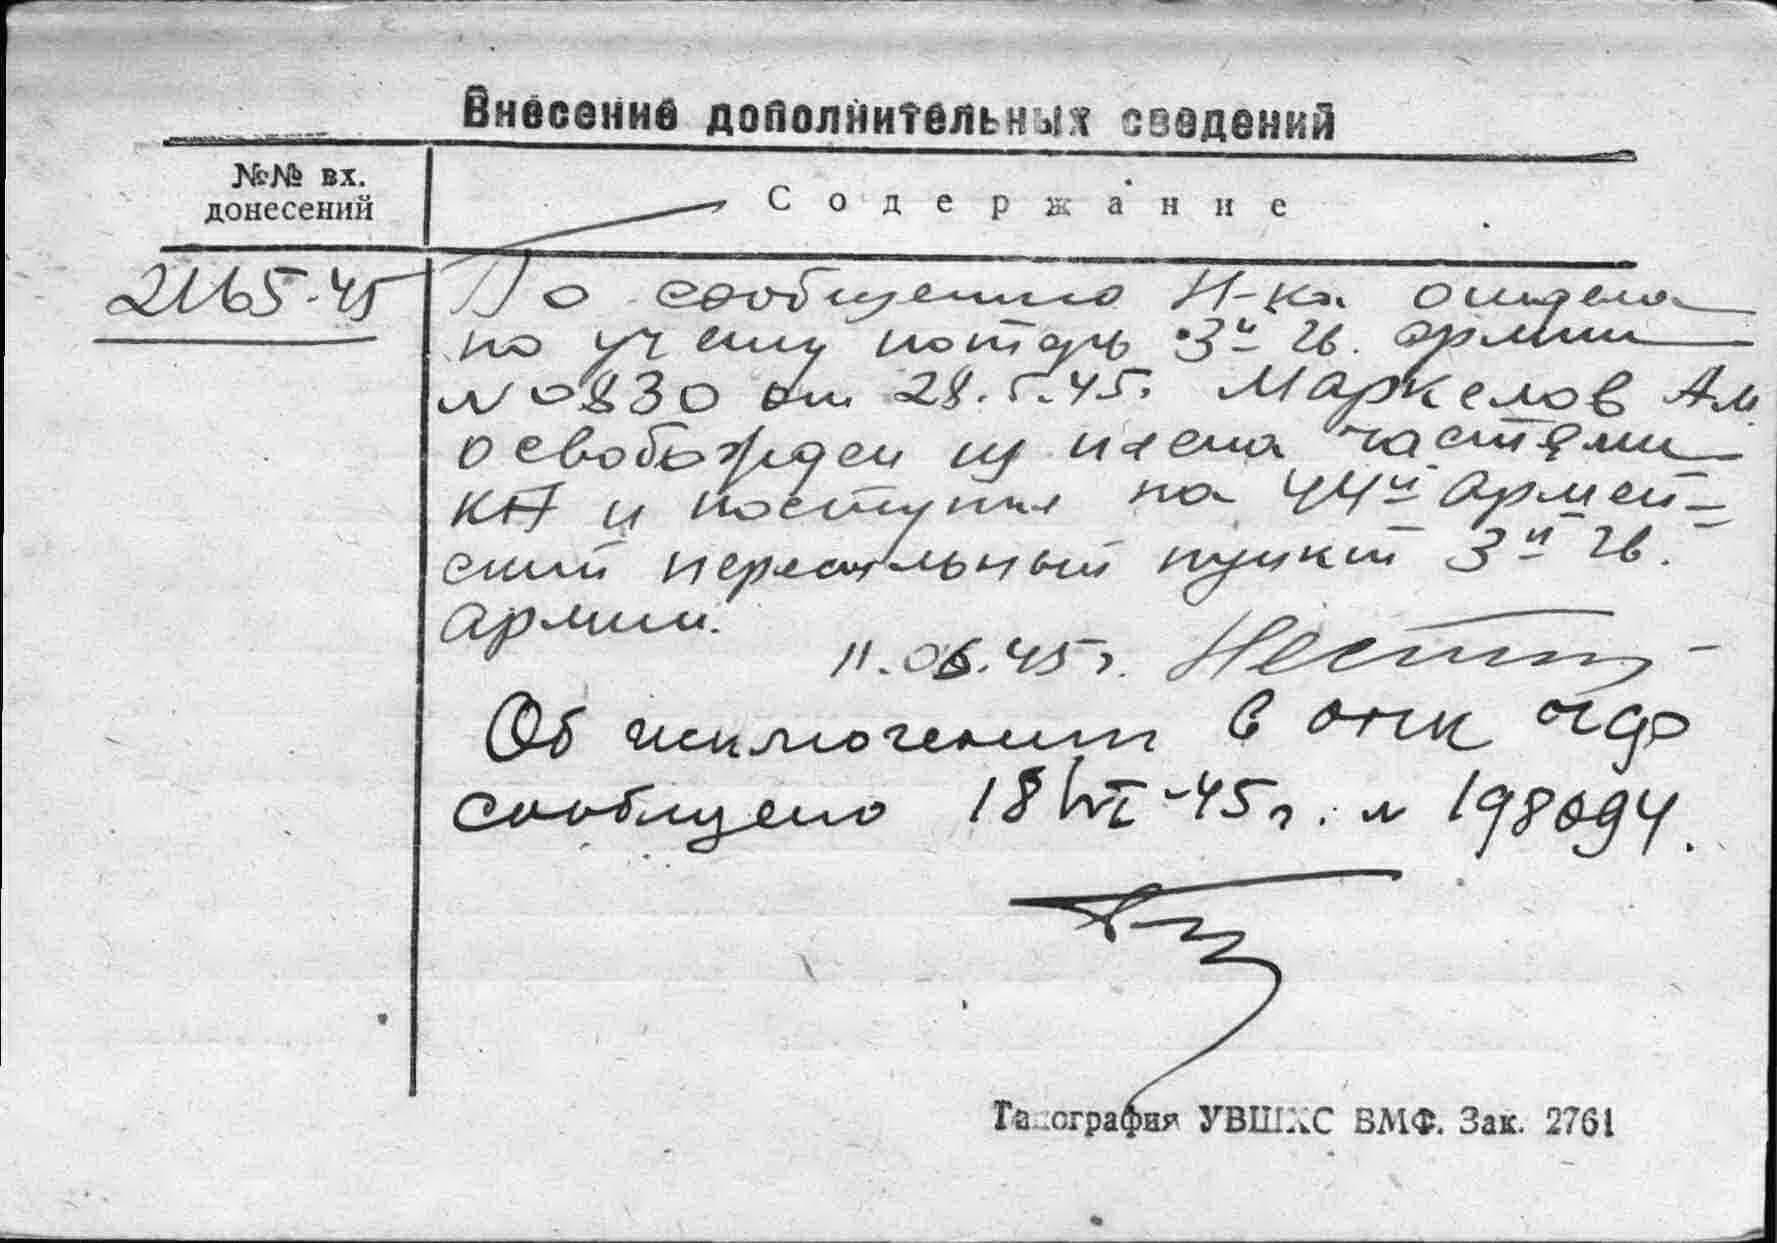 Внесение дополнительных сведений
№№ вх.
донесений
Содержание
21165-45
По сообщению Н-ка отдела
по учету потерь 3й гв. армии
№ 0830 от 28.5.45г. Маркелов А.М.
освобожден из плена частями
КА и поступил на 44й армей-
ский пересыльный пункт 3й гв.
армии.
11.06.45г.
Об исключении в
сообщено 18/VI-45г. № 198094.
Типография УВШКС ВМФ. Зак. 2761